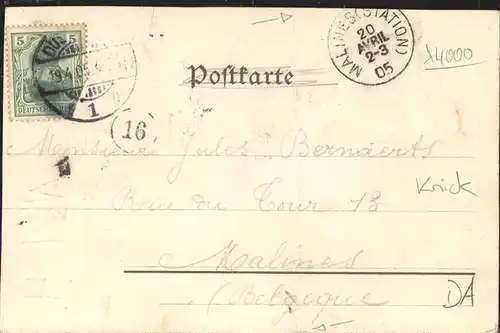 5 5
19.4.0
1
DEUTSCHES
MALINES(STATION)
20
AVRIL
2-3
05
14000
Postkarte
16
Monsieur Jules Bernaerts
Knick
Rue du Tour 13
Malines
(Belgique
DA